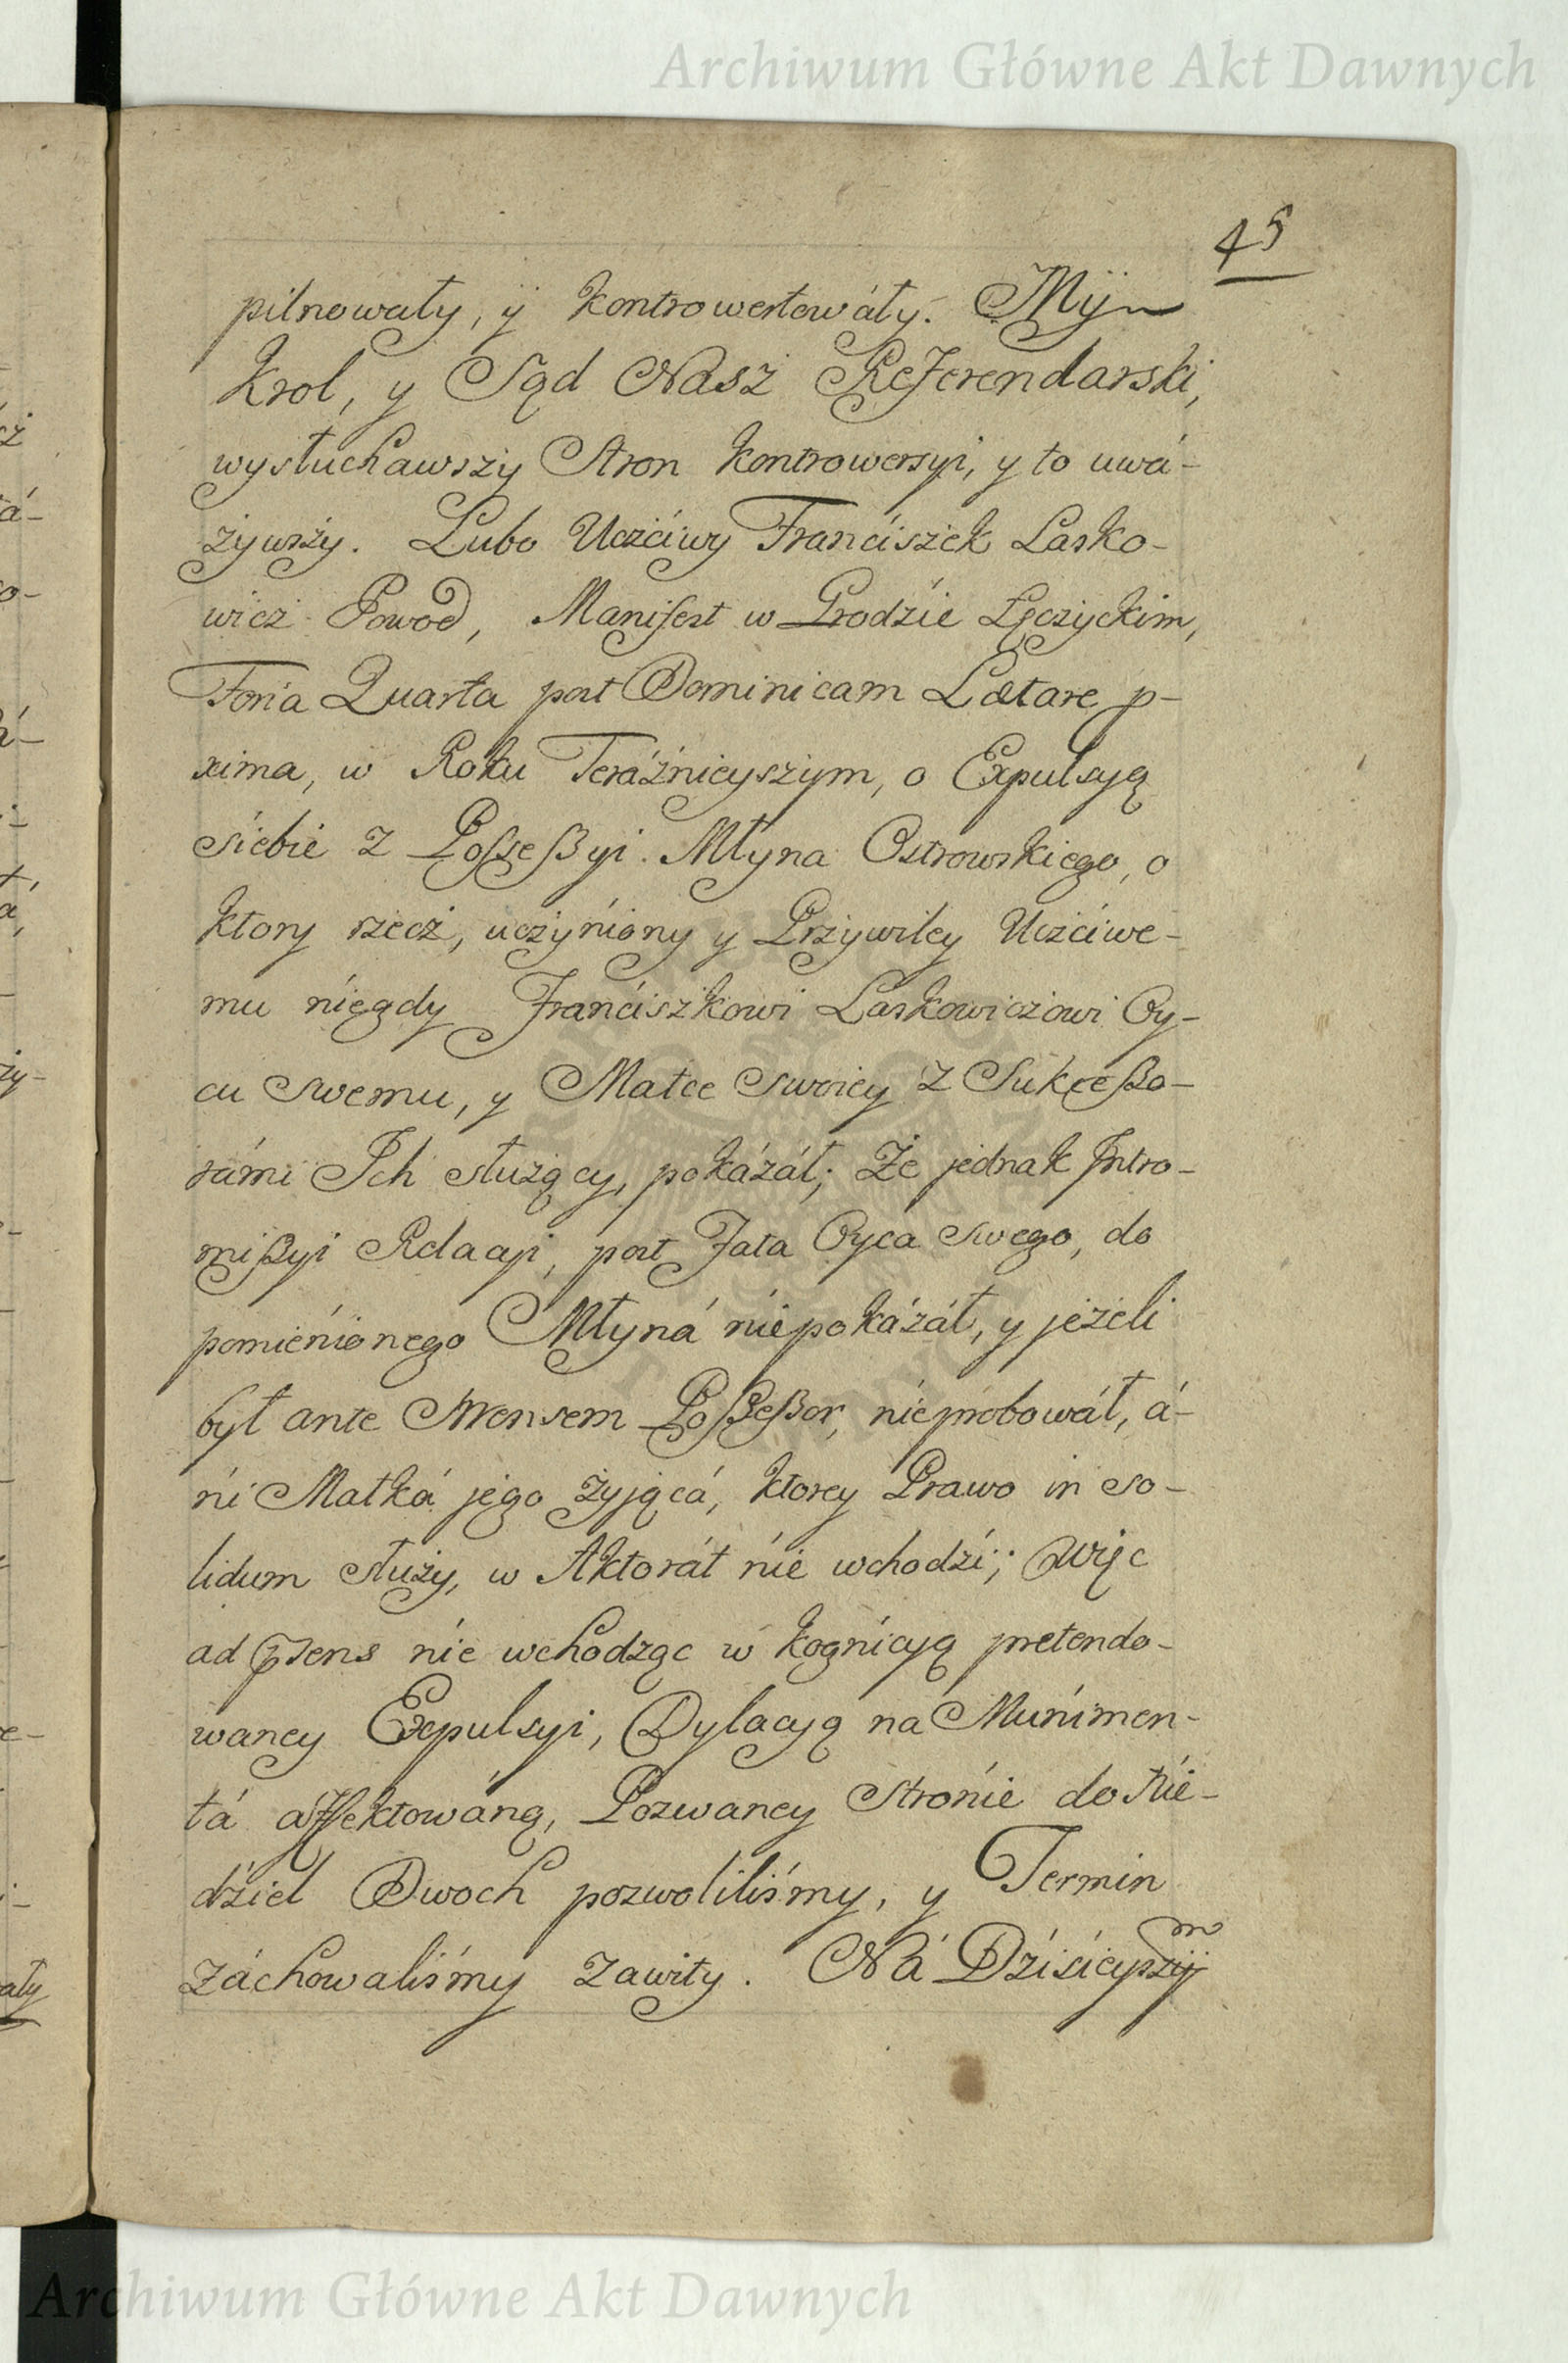 Archiwum Główne Akt Dawnych
45
pilnowały, ÿ kontrowertowáły. Mÿ
Krol, y Sąd Nasż Referendarski,
wysłuchawszÿ Stron kontrowersyi, y to uwá-
żywszy. Lubo Uczciwy Franciszek Lasko-
wicz Powod, Manifest w Grodzie Łęczyckim,
Feria Quarta post Dominicam Lætare p-
xima, w Roku Teráźnieyszym, o Expulsyą
siebie z Possessyi Młyna Ostrowskiego, o
ktory rzecż, uczyniony y Przywiley Uczciwe-
mu niegdy Franciszkowi Laskowiczowi Oy-
cu swemu, y Matce swoiey z Sukcesso-
rámi Ich służący, pokázáł; Że jednak Intro-
missyi Relacyi, post Fata Oyca swego, do
pomienionego Młyná niepokázáł, y jeżeli
był ante Mensem Possessor, nieprobowáł, á-
ni Matká jego żyjącá, ktorey Prawo in so-
lidum służy, w Aktorát nie wchodzi; więc
ad psens nie wchodząc w kognicyą pretendo-
waney Expulsyi, Dylacyą na Munimen-
tá affektowáną, Pozwaney Stronie do Nie-
dziel Dwoch pozwoliliśmy, y Termin
záchowaliśmy zawity. Ná Dzisieyszÿm
ały
Archiwum Główne Akt Dawnych